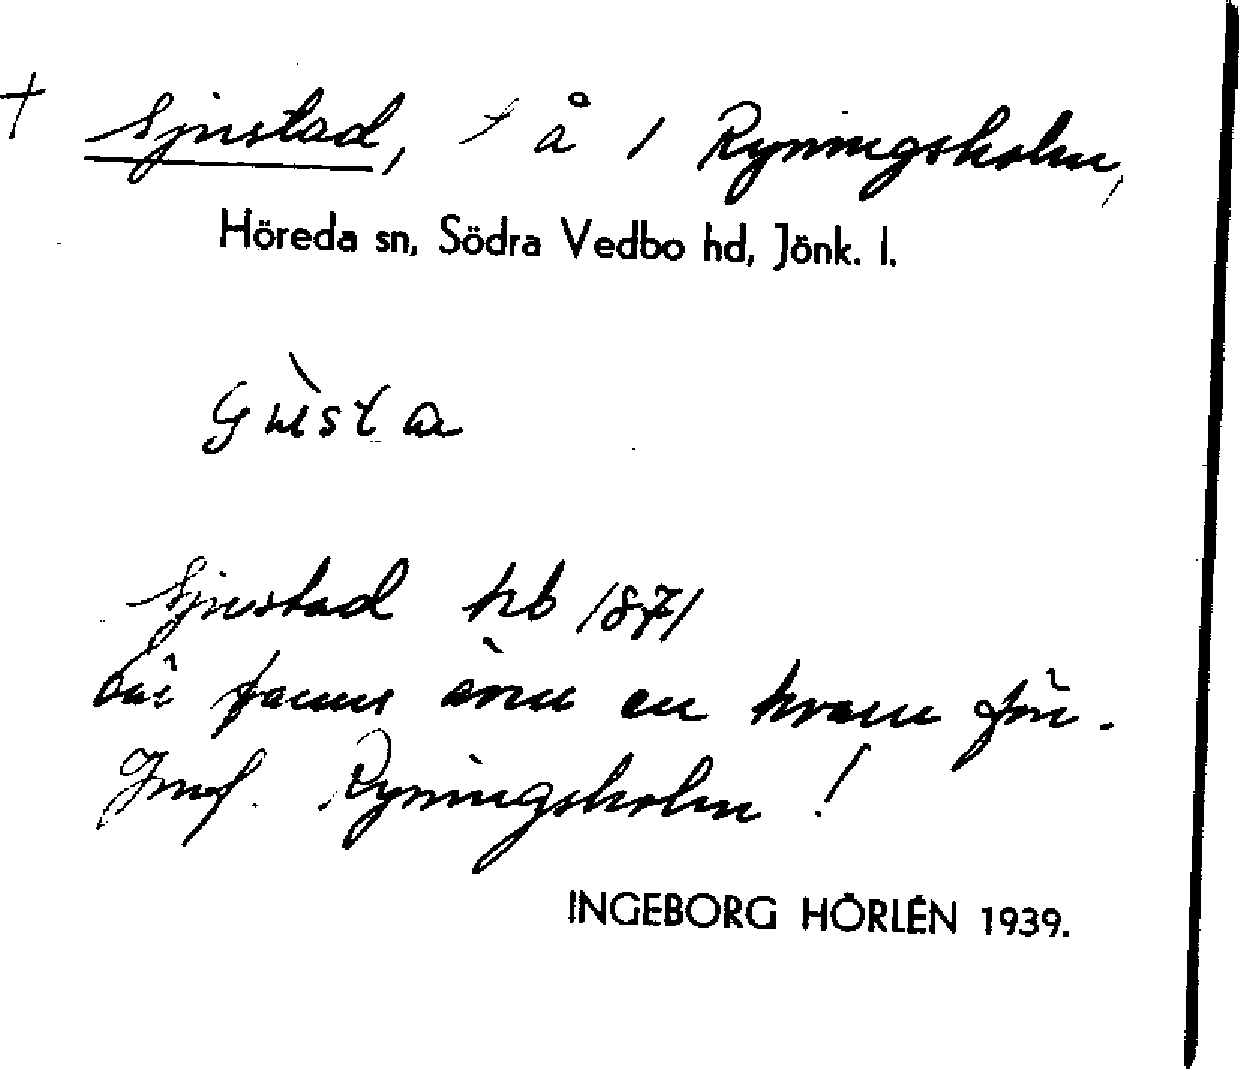 + Ljustad, t å 1 Ryningsholm,
Höreda sn, Södra Vedbo hd, Jönk. l.
Ljustad hb 1871
fanns en kvarn för.
Ryningsholm !
INGEBORG HÖRLÉN 1939.